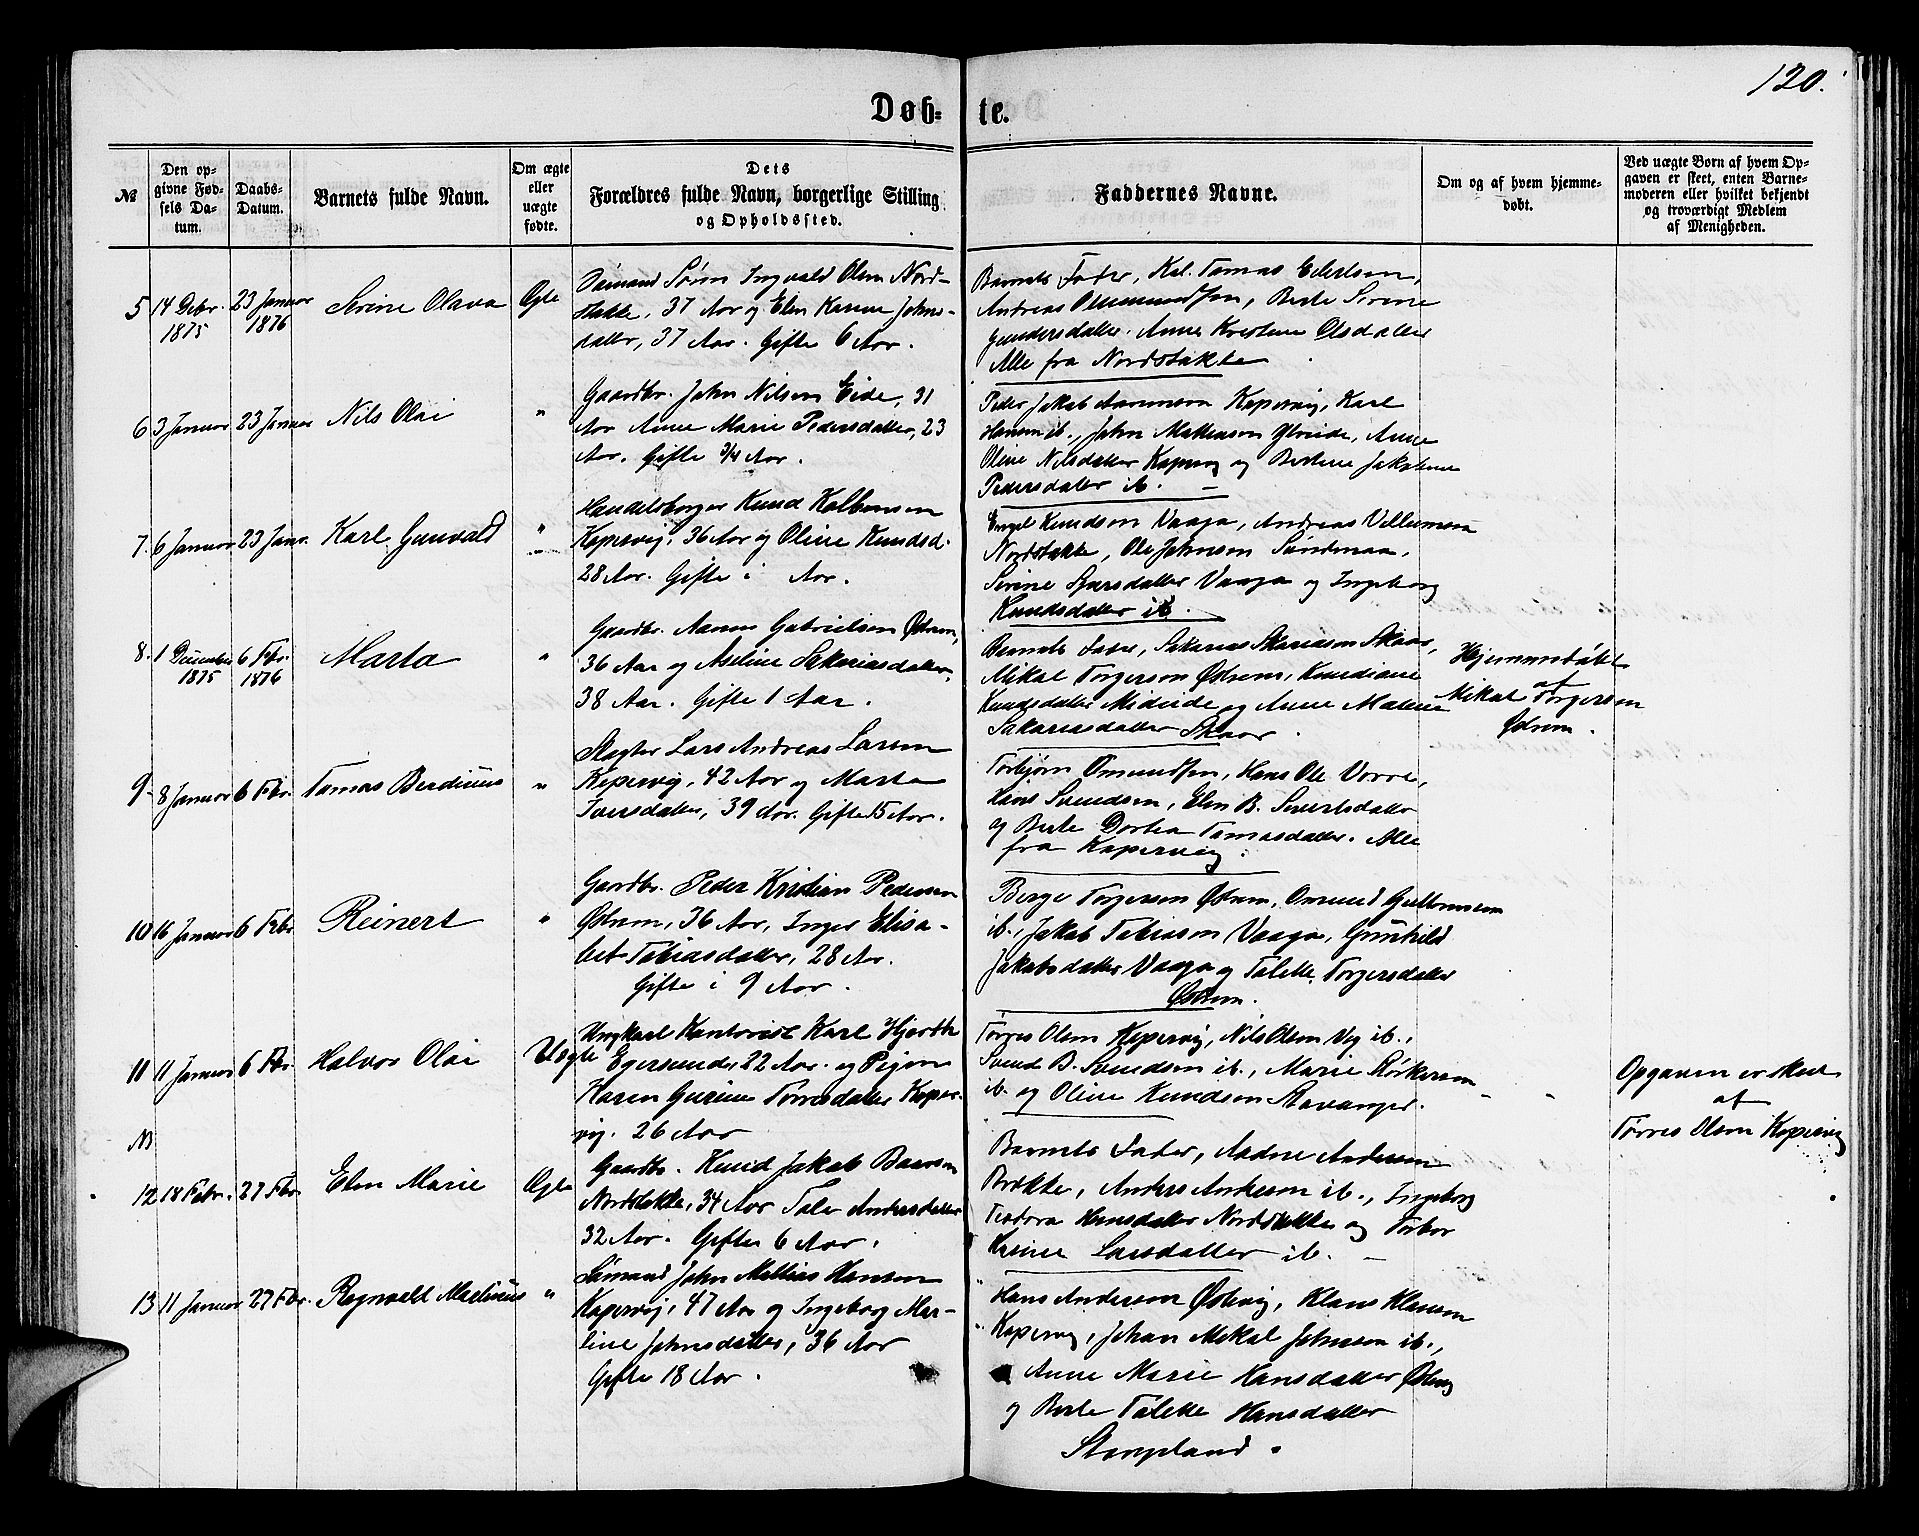 120.
Døb- te.
№
Den op-
givne Fød-
sels Da-
tum.
Daabs-
Datum.
Barnets fulde Navn.
Om ægte
eller
uægte
fødte.
Dets
Forældres fulde Navn, borgerlige Stilling
og Opholdssted.
Faddernes Navne.
Om og af hvem hjemme-
døbt.
Ved uægte Børn af hvem Op-
gaven er skeet, enten Barne-
moderen eller hvilket bekjendt
og troværdigt Medlem
af Menigheden.
5 14 Debr. 1875
23 Januar 1876
Serine Olava
Ægte
Sømand Søren Ingvald Olsen Nord-
stokke, 37 Aar og Elen Karine Johns-
datter, 37 Aar. Gifte 6 Aar.
Barnets Fader, Kal. Tomas Eilertsen,
Andreas Ommundsen, Berte Serine
Gundersdatter. Anne Kristine Olsdatter
Alle fra Nordstokke
6 3 Januar
23 Januar
Nils Olai
"
Gaardbr. John Nilsen Eide, 31
Aar Anne Marie Pedersdatter, 23
Aar. Gifte 3/4 Aar.
Peder Jakob Aanensen Kopervig, Karl
Hansen ib., John Mathiasen Østreide, Anne
Oline Nilsdatter Kopervig og Bertine Jakobine
Pedersdatter ib. –
7 6 Januar
23 Janr.
Karl Gunvald
"
Handelsborger Knud Kolbensen
Kopervig, 36 Aar og Oline Knudsd.
28 Aar. Gifte i Aar.
Engel Knudsen Vaaga, Andreas Villumsen
Nordstokke, Ole Johnsen Sundenaa,
Serine Sjursdatter Vaaga og Ingeborg
Knudsdatter ib.
8. 1 December 1875
6 Febr. 1876
Marta
"
Gaardbr. Aanen Gabrielsen Østrem,
36 Aar og Aseline Sakariasdatter,
38 Aar. Gifte 1 Aar.
Barnets Fader, Sakarias Skariassen Skaar,
Mikal Torgersen Østrem, Knudiane
Knudsdatter Mideide og Anne Malene
Sakariasdatter Skaar.
Hjemmedøbt
af
Mikal Torgersen
Østrem.
9. 8 Januar
6 Fbr.
Tomas Berdinus
"
Slagter Lars Andreas Larsen
Kopervig, 42 Aar og Marta
Iversdatter, 39 Aar. Gifte 15 Aar.
Torbjørn Omundsen, Hans Ole Vorre,
Hans Svendsen, Elen B. Sivertsdatter
og Berte Dortea Tomasdatter. Alle
fra Kopervig.
10 16 Januar
6 Febr
Reinert
"
Gaardbr. Peder Kristian Pedersen
Østrem, 36 Aar, Inger Elisa-
bet Tobiasdatter, 28 Aar.
Gifte i 9 Aar.
Berge Torgersen Østrem, Omund Guttormsen
ib., Jakob Tobiasen Vaaga, Gunhild
Jakobsdatter Vaaga og Talette Torgersdatter
Østrem.
11 11 Januar
6 Fbr.
Halvor Olai
Uægte
Ungkarl Kontorist Karl Hjorth
Egersund, 22 Aar. og Pigen
Karen Gurine Torresdatter Koper-
vig. 26 Aar
Tørres Olsen Kopervig, Nils Olsen Vej ib.,
Svend B. Svendsen ib., Marie
ib. og Oline Knudsen Stavanger.
" "
Opgaven er skeet
af
Tørres Olsen Kopervig
NB
12 18 Febr.
27 Fbr.
Elen Marie
Ægte
Gaardbr. Knud Jakob Baarsen
Nordstokke, 34 Aar Tale Andersdatter
32 Aar. Gifte 6 Aar.
Barnets Fader, Aadne Andersen
Brekke, Anders Andersen ib., Ingeborg
Teodora Hansdatter Nordstokke og Torbor
Larsdatter ib. –
13 11 Januar
27 Fbr.
Ragnvald Martinius
"
Sømand John Mathias Hansen
Kopervig, 47 Aar og Ingeborg Mar-
tine Johnsdatter, 36 Aar
Gifte 18 Aar.
Hans Andersen Østevig, Klaus Klausen
Kopervig, Johan Mikal Johnsen ib.,
Anne Marie Hansdatter Østevig
og Berte Talette Hansdatter
Stangeland.